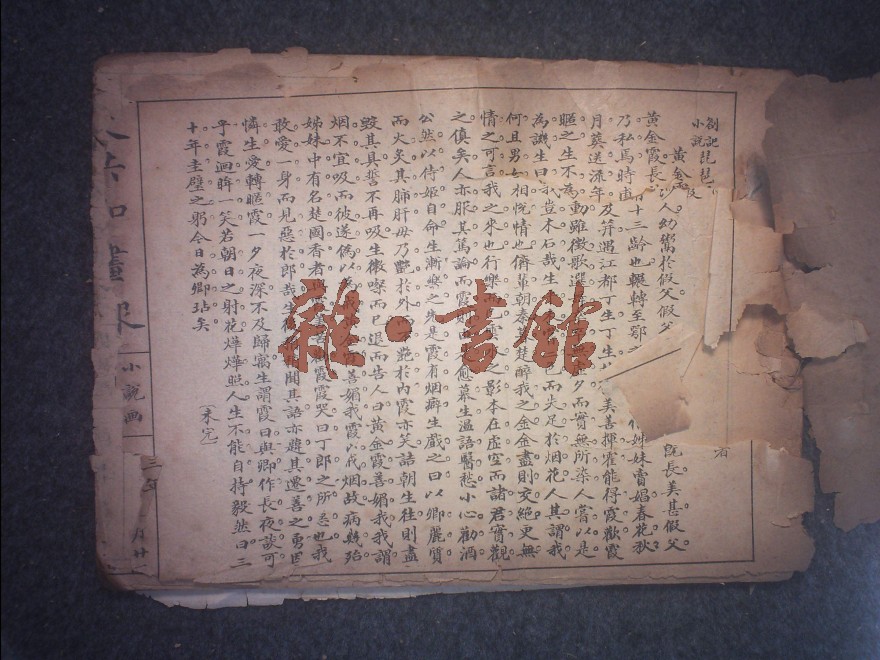 劄記
小說
琵琶
黃金
者
黃金霞長沙人幼鬻於假父假父 既長美甚假父
乃私焉時 十三齡也輾轉至鄂 姊妹賣娼春花秋
月蓂送流年及笄遇江都丁生丁生 美善揮霍能得霞歡霞
暱之生不為動雖徵歌選 夕而實無所染人嘗以是
為譏生曰 豈木石哉生 已而失足於烟花人其謂我
何且男女相悅情也儕輩朝秦暮楚醉我之金金盡則交絕更無
情之可言我之來也行樂 雲 之影本在虛空而諸君實觀
之傎矣人亦服其篤論而霞 愈慕生溫語醫愁小心勸酒
公然以侍姬自命生漸 之先是霞有烟癖生戲之曰以卿麗質
而火炙其肺肝毋乃艷於外 艷於內霞亦笑詰朝生往則盡
毀其具誓不再吸生微 而已退而告人曰黃金霞善媚我我謂
烟不宜吸而彼遂偽以為 善媚我霞以戒烟故病幾殆
姊妹中有名楚國香者 霞霞哭曰丁郎之所 也我
敢愛一身而見惡於郎哉生 聞其語亦韙其遷善之勇
憐生愛轉暱霞一夕夜深不及歸寓生謂霞曰與卿作長夜 可
乎霞迴眸一笑若朝日之射花燁燁照人生不能自持毅然曰三
十年圭璧之躬今日為卿玷矣
〔未完〕
畫報
小說画
三 月廿
雜·書館